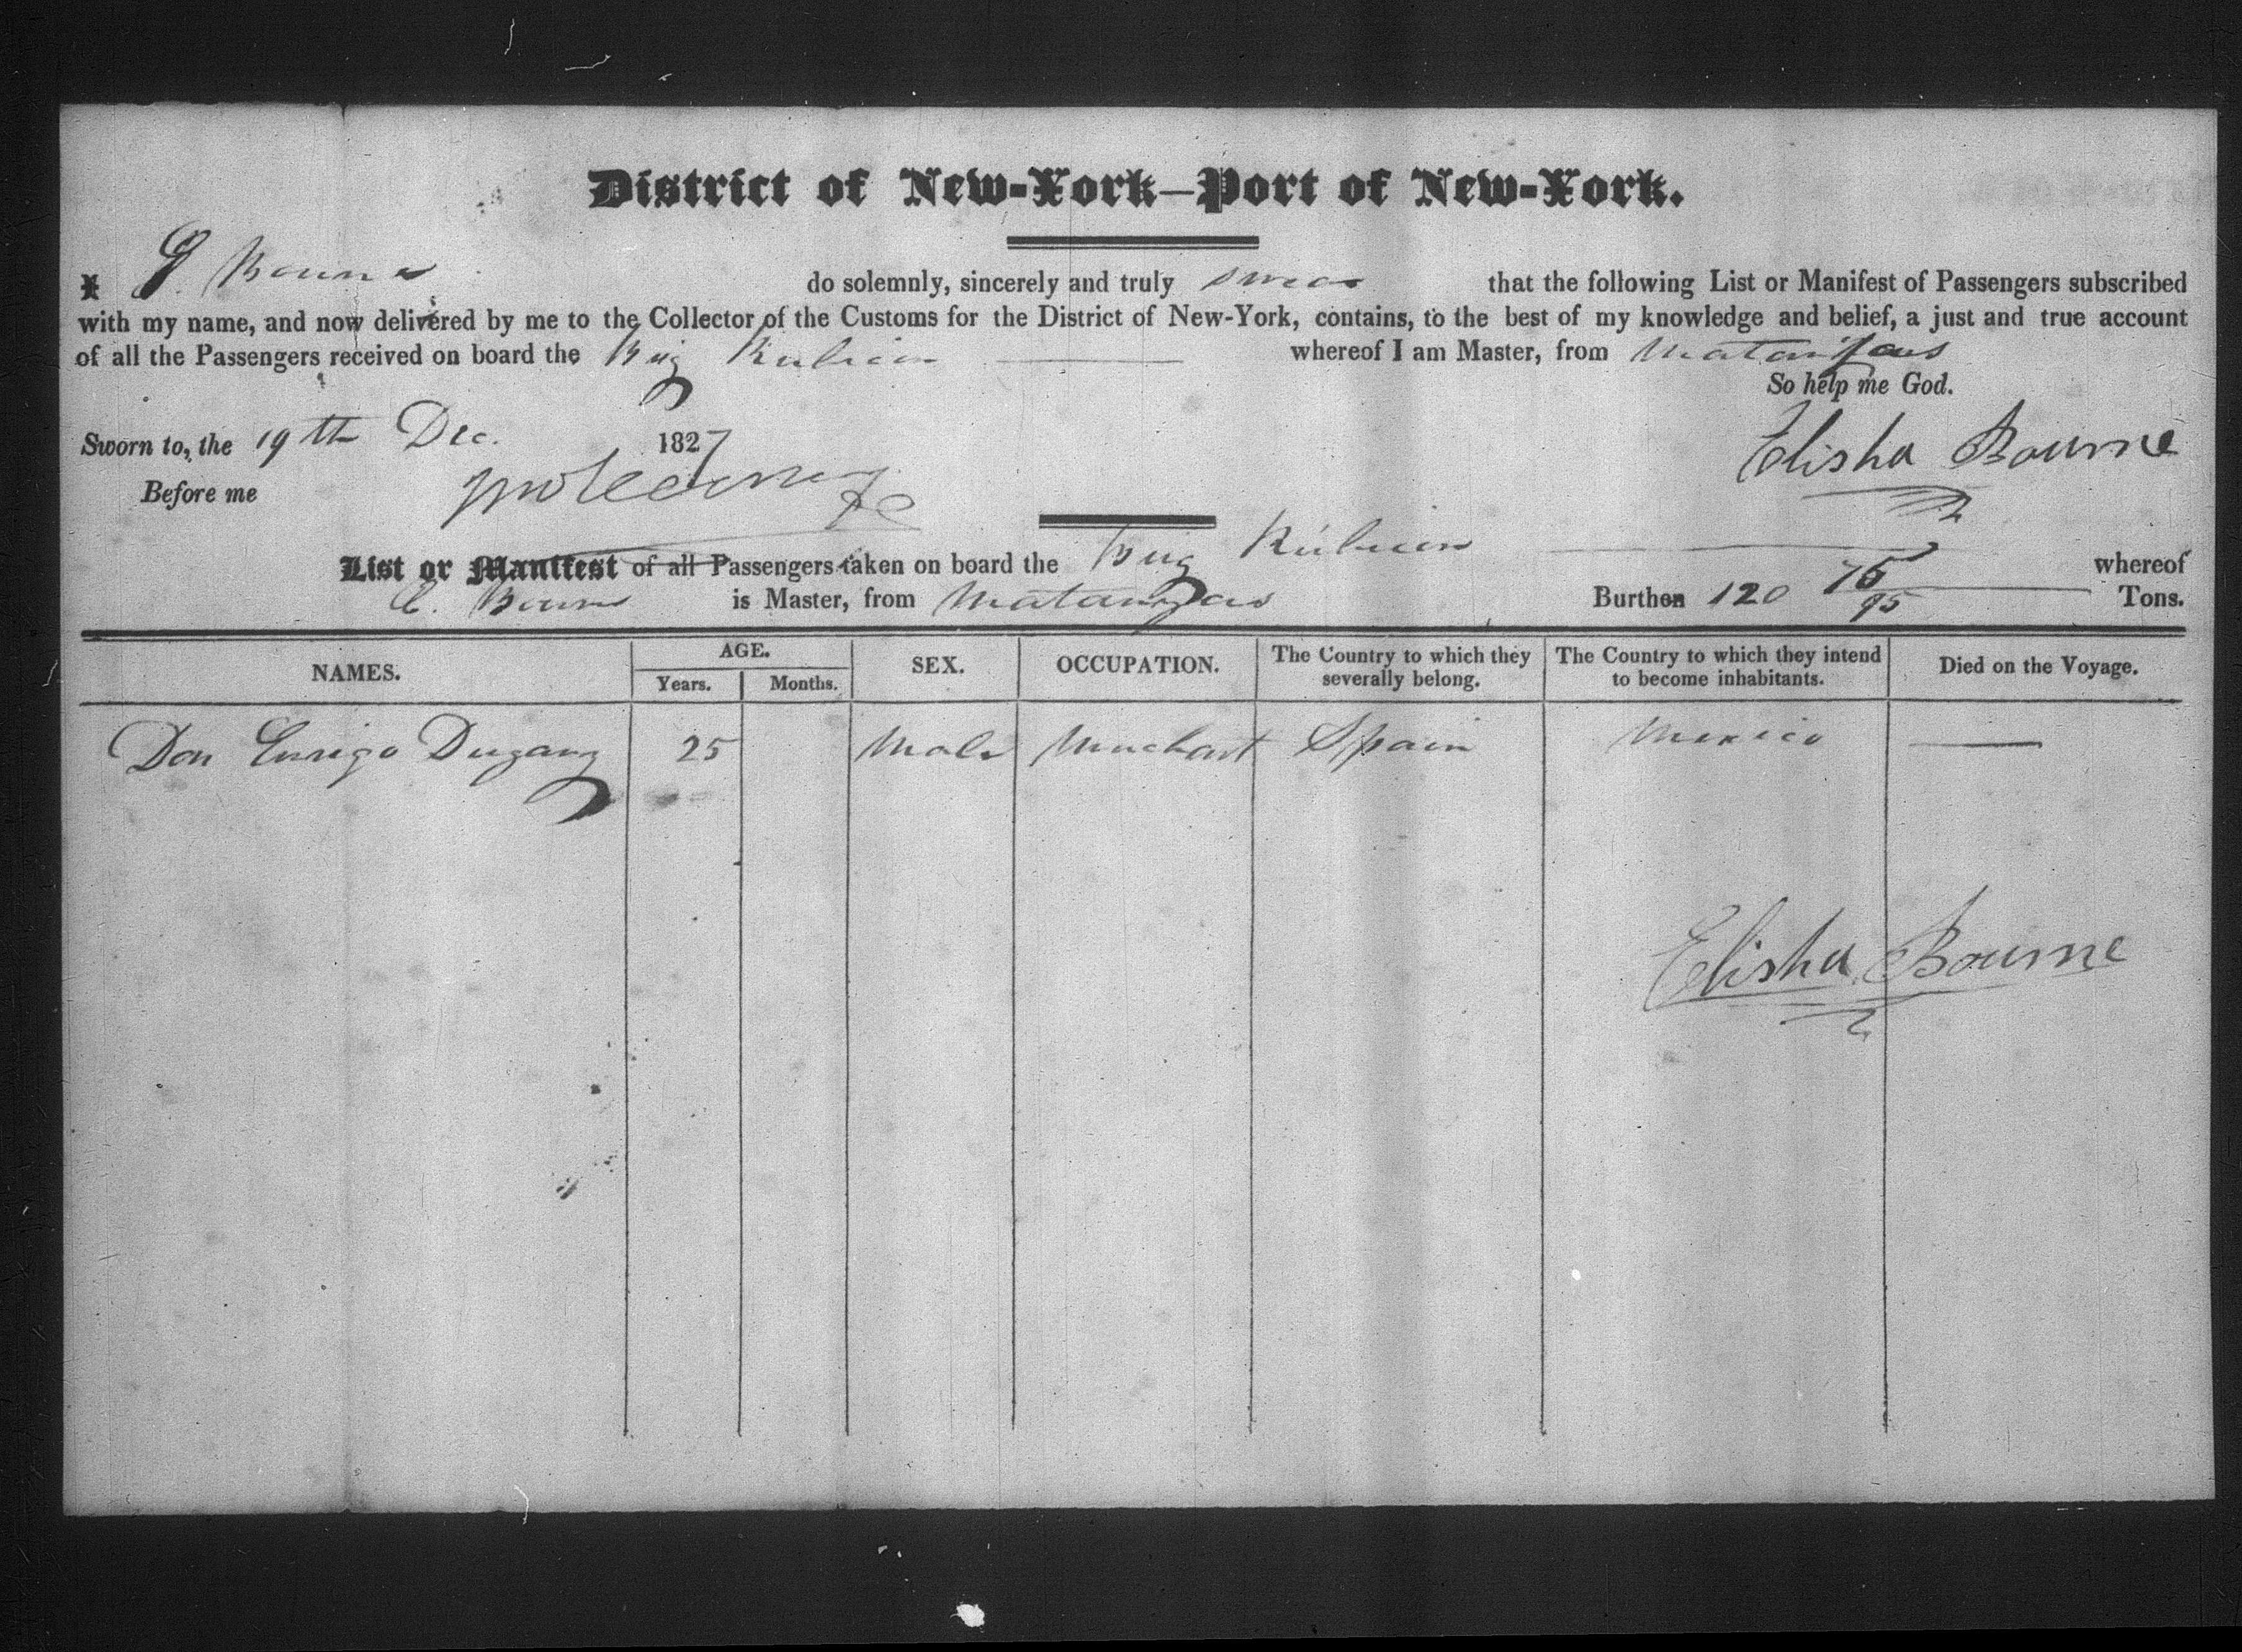 District of New-York—Port of New-York.
I E. Bourne do solemnly, sincerely and truly swear that the following List or Manifest of Passengers subscribed
with my name, and now delivered by me to the Collector of the Customs for the District of New-York, contains, to the best of my knowledge and belief, a just and true account
of all the Passengers received on board the Brig Rubicon whereof I am Master, from Matanzas
So help me God.
Sworn to, the 19th Dec. 1827
Elisha Bourne
Before me
List or Manifest of all Passengers taken on board the Brig Rubicon whereof
E. Bourne is Master, from Matanzas Burthen 120 75/95 Tons.
NAMES. AGE. Years. Months. SEX. OCCUPATION. The Country to which they severally belong. The Country to which they intend to become inhabitants. Died on the Voyage.
Don Enrigo 25 Male Merchant Spain Mexico —
Elisha Bourne